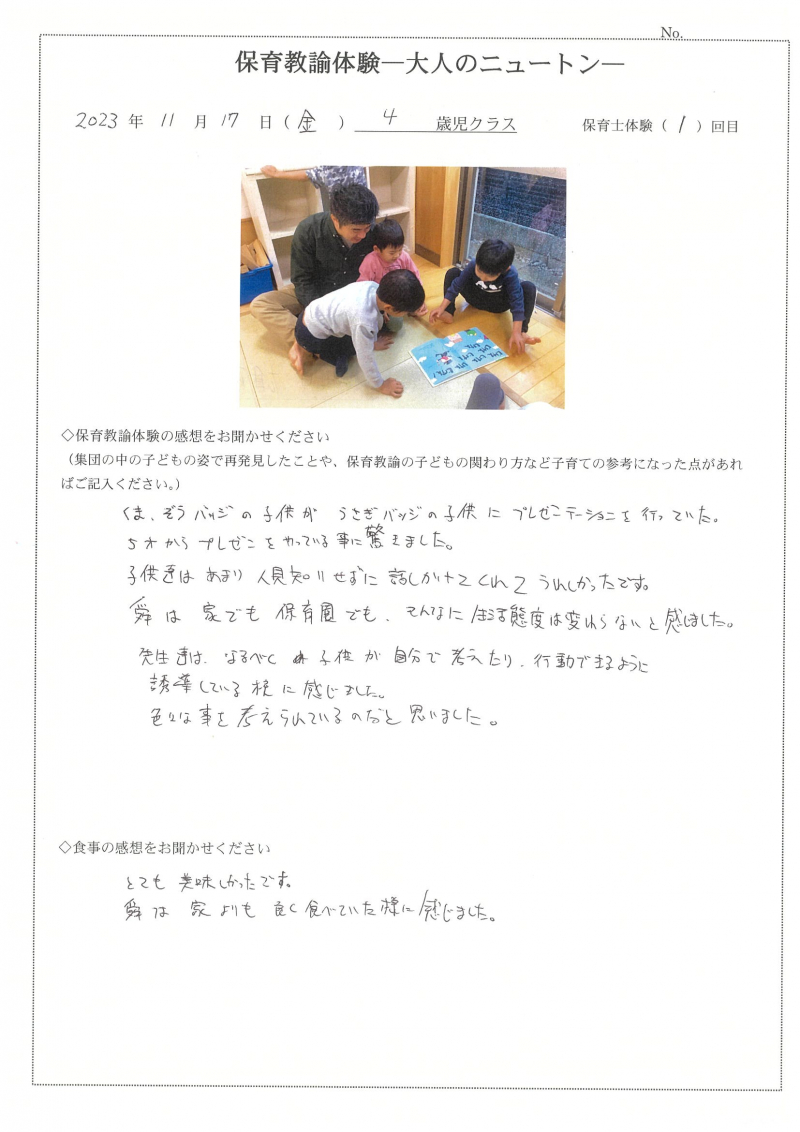 No.
保育教諭体験―大人のニュートン―
2023 年 11 月 17 日(金 ) 4 歳児クラス 保育士体験( 1 )回目
◇保育教諭体験の感想をお聞かせください
(集団の中の子どもの姿で再発見したことや、保育教諭の子どもの関わり方など子育ての参考になった点があれ
ばご記入ください。)
くま、ぞうバッジの子供が うさぎバッジの子供に プレゼンテーションを行っていた。
5才からプレゼンをやっている事に驚きました。
子供達は あまり人見知りせずに 話しかけてくれてうれしかったです。
舜は 家でも 保育園でも、そんなに 生活態度は変わらないと感じました。
先生達は、なるべく 子供が 自分で考えたり、行動できるように
誘導している様に感じました。
色々な事を考えられているのだと思いました。
◇食事の感想をお聞かせください
とても 美味しかったです。
舜は 家よりも 良く食べていた様に感じました。